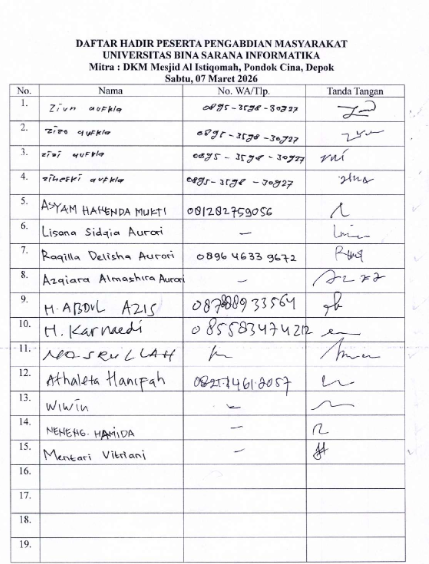 DAFTAR HADIR PESERTA PENGABDIAN MASYARAKAT
UNIVERSITAS BINA SARANA INFORMATIKA
Mitra : DKM Mesjid Al Istiqomah, Pondok Cina, Depok
Sabtu, 07 Maret 2026
No. Nama No. WA/Tlp. Tanda Tangan
1. aufkla 0895-3598-30927
2. aufkla 0895-3598-30927
3. zivi aufkla 0895-3598-30927
4. aufkla 0895-3598-30927
5. ASYAM MAHENDA MUKTI 081282759056
6. Lisana Sidqia Aurori -
7. Raqilla Delisha Aurori 0896 4633 9672
8. Azqiara Almashira Aurori -
9. M. ABDUL AZIS
10. H. Karnaedi 085583474212
11. NASRULLAH
12. Athaleta Hanifah
13. Wiwin -
14. NENENG. HAMIDA -
15. Mentari Vitriani -
16.
17.
18.
19.